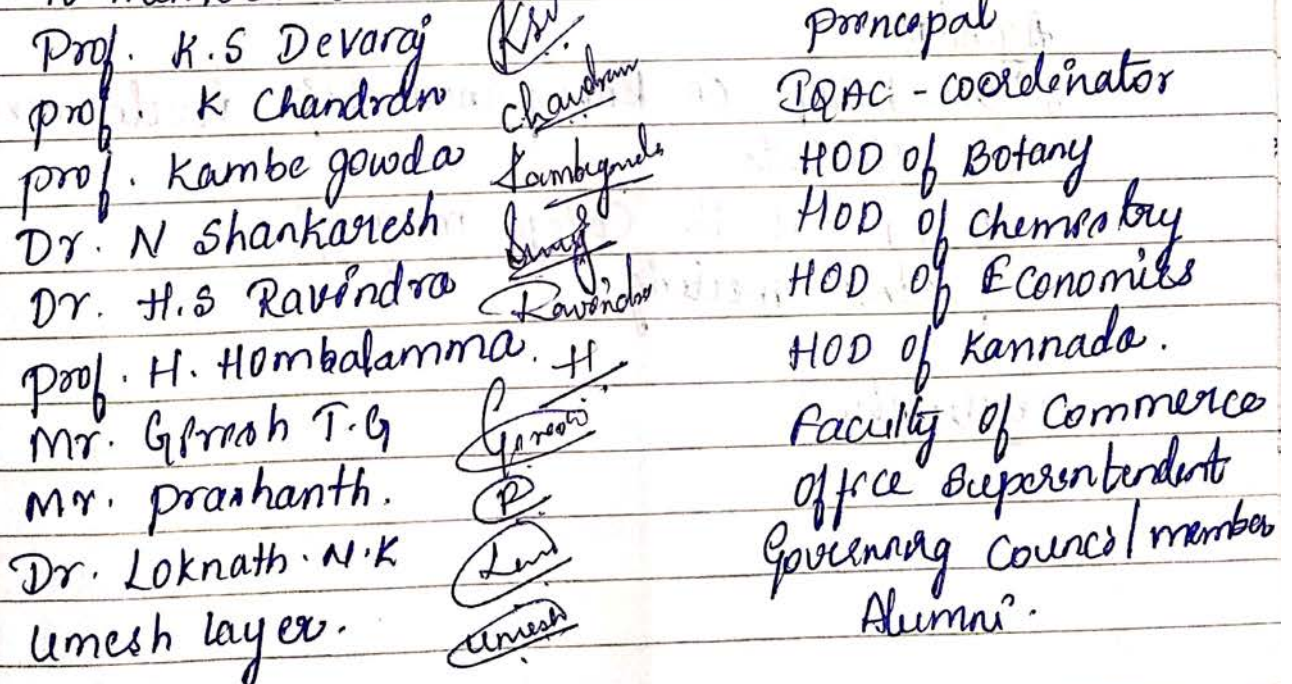 Prof. K.S Devaraj Ksu Principal
Prof. K Chandra Chandra IQAC - Coordinator
Prof. Kambe gowda Kambegowda HOD of Botany
Dr. N Shankaresh HOD of Chemistry
Dr. H.S Ravindra Ravindra HOD of Economics
Prof. H. Hombalamma. H HOD of Kannada.
Mr. Girish T.G Girish Faculty of Commerce
Mr. Prashanth. P Office Superintendent
Dr. Loknath. N.K Governing Council member
Umesh layer. Umesh Alumni.